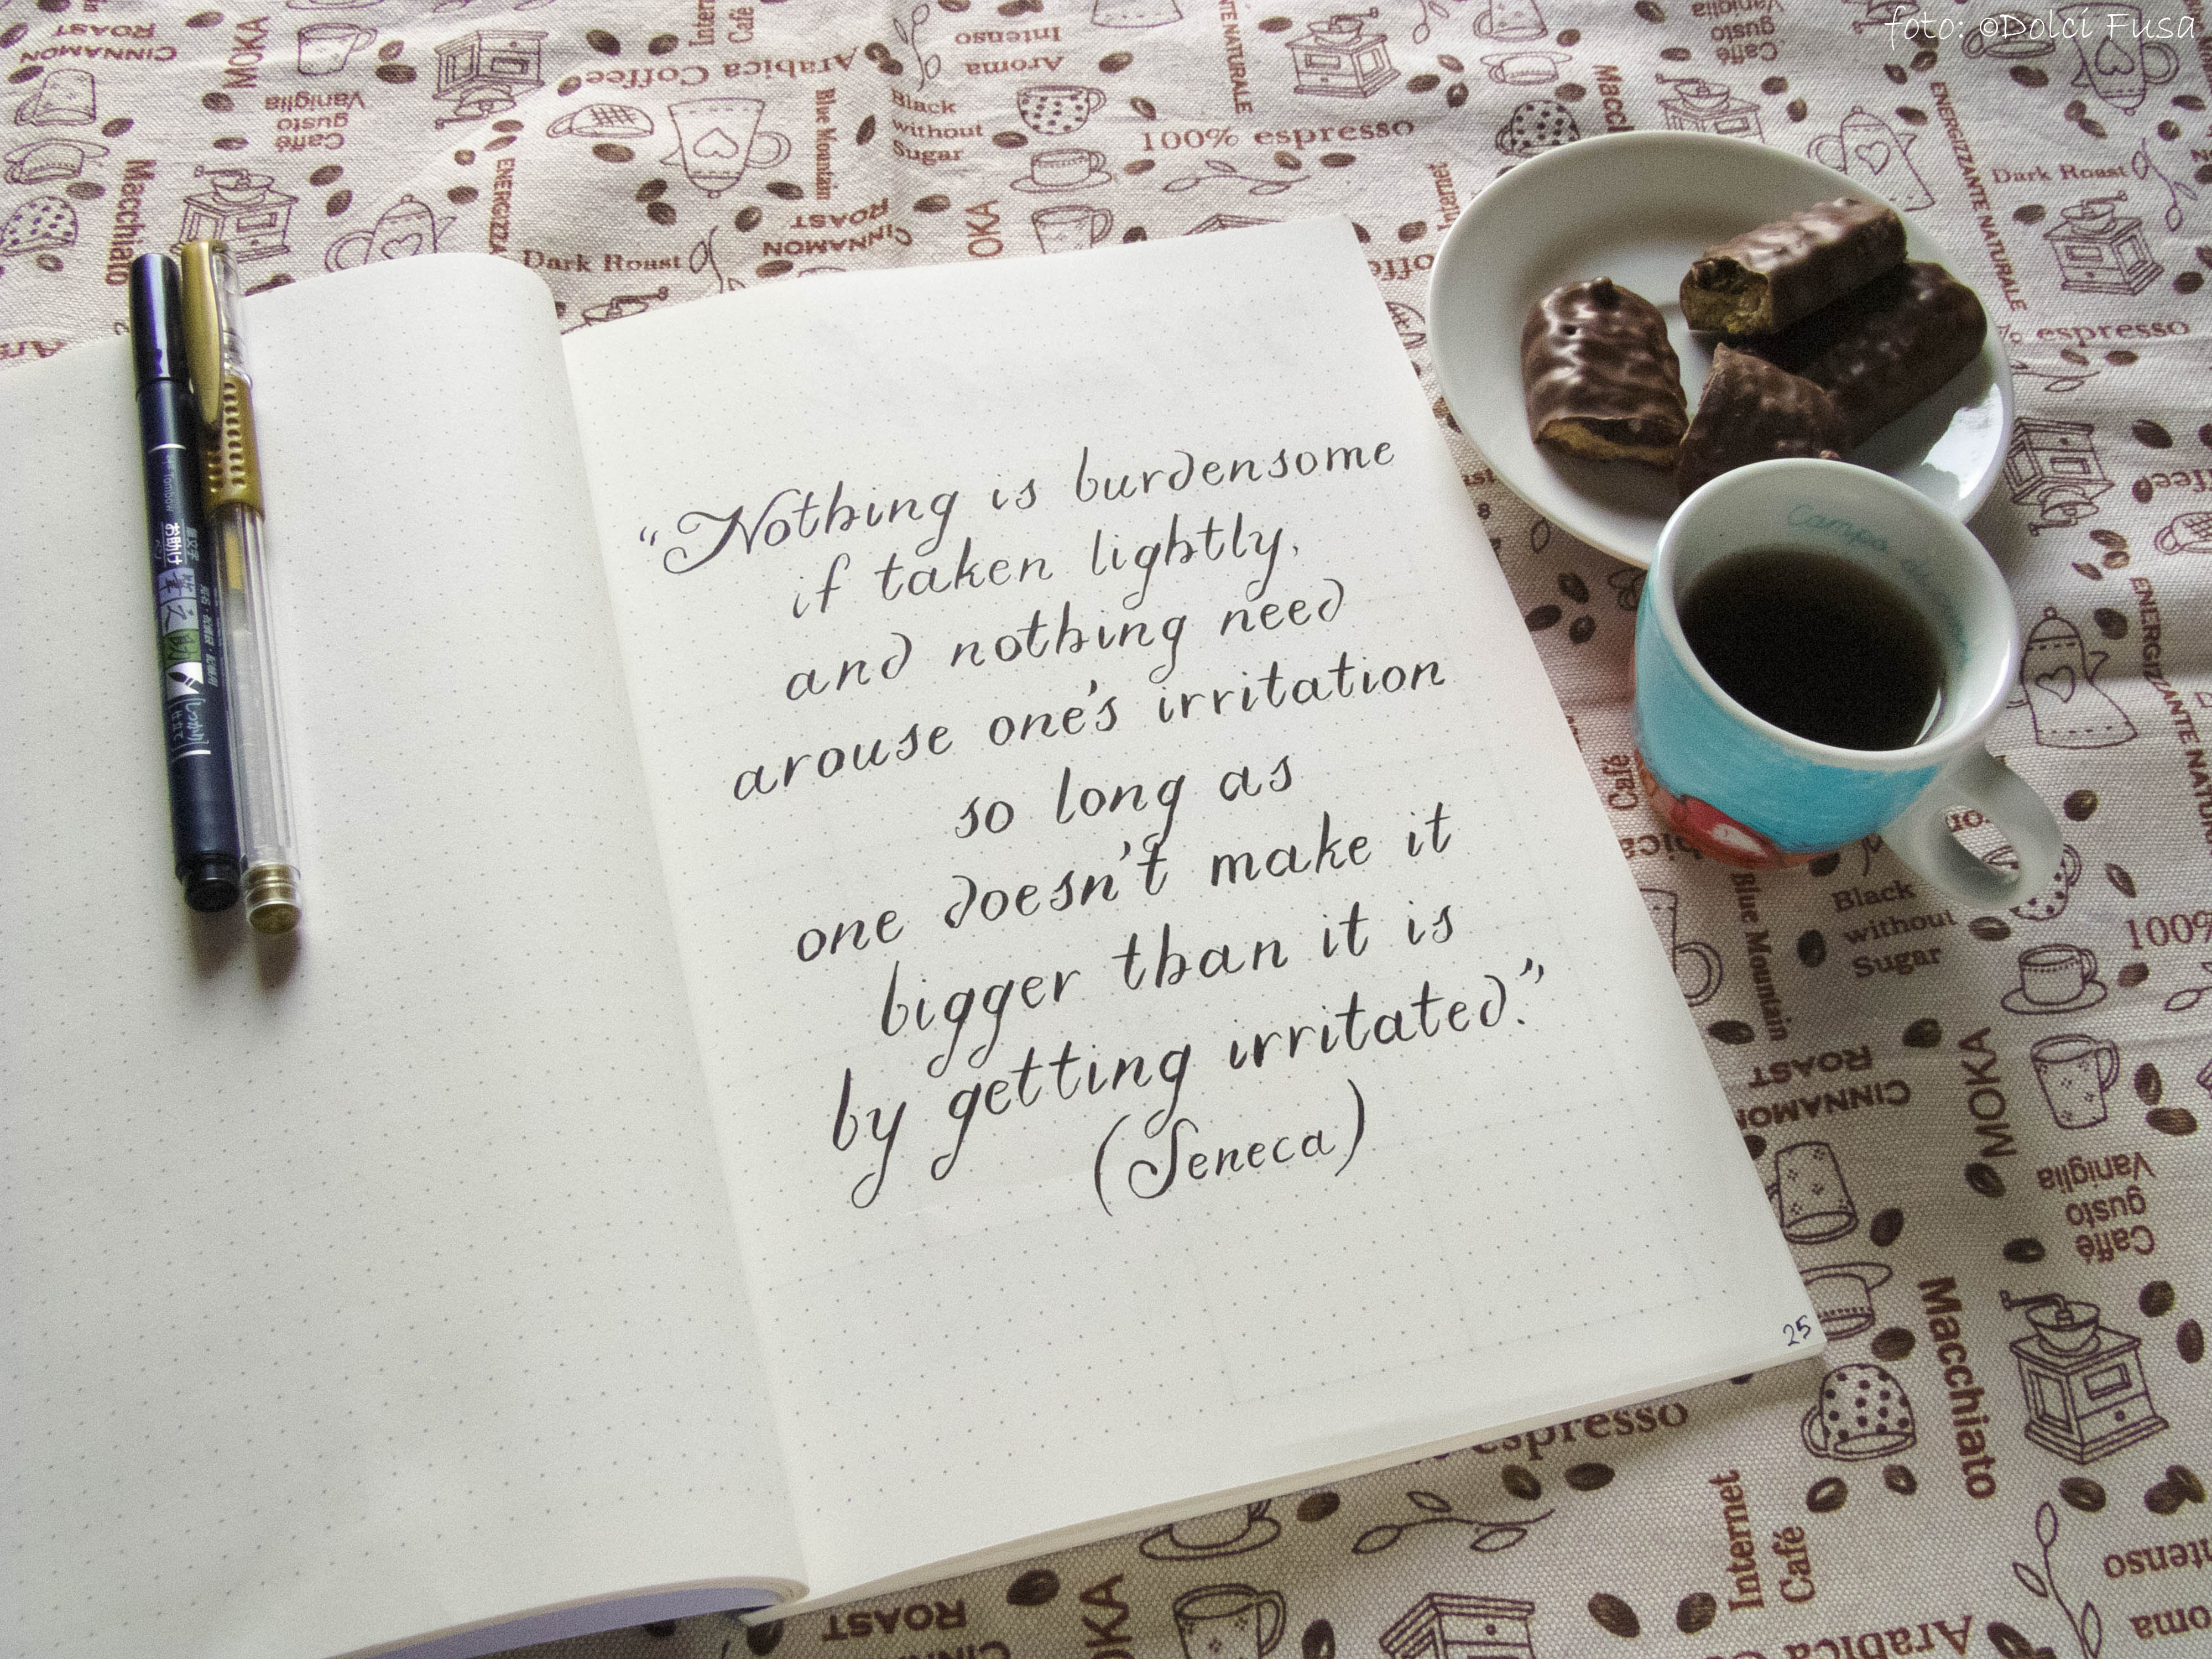 foto: ©Dolci Fusa
“Nothing is burdensome
if taken lightly,
and nothing need
arouse one's irritation
so long as
one doesn't make it
bigger than it is
by getting irritated.”
(Seneca)
25
CINNAMON
ROAST
MOKA
Caffé
gusto
Vaniglia
Macchiato
Internet
Café
Arabica Coffee
Blue Mountain
Aroma
Intenso
Black
without
Sugar
100% espresso
Dark Roast
CINNAMON
ROAST
Caffé
gusto
Vaniglia
ENERGIZZANTE NATURALE
Dark Roast
espresso
Tombow
Campo
ENERGIZZANTE
Café
Blue Mountain
Black
without
Sugar
100%
CINNAMON
ROAST
MOKA
Caffé
gusto
Vaniglia
Macchiato
espresso
Internet
Café
Arabica
ROAST